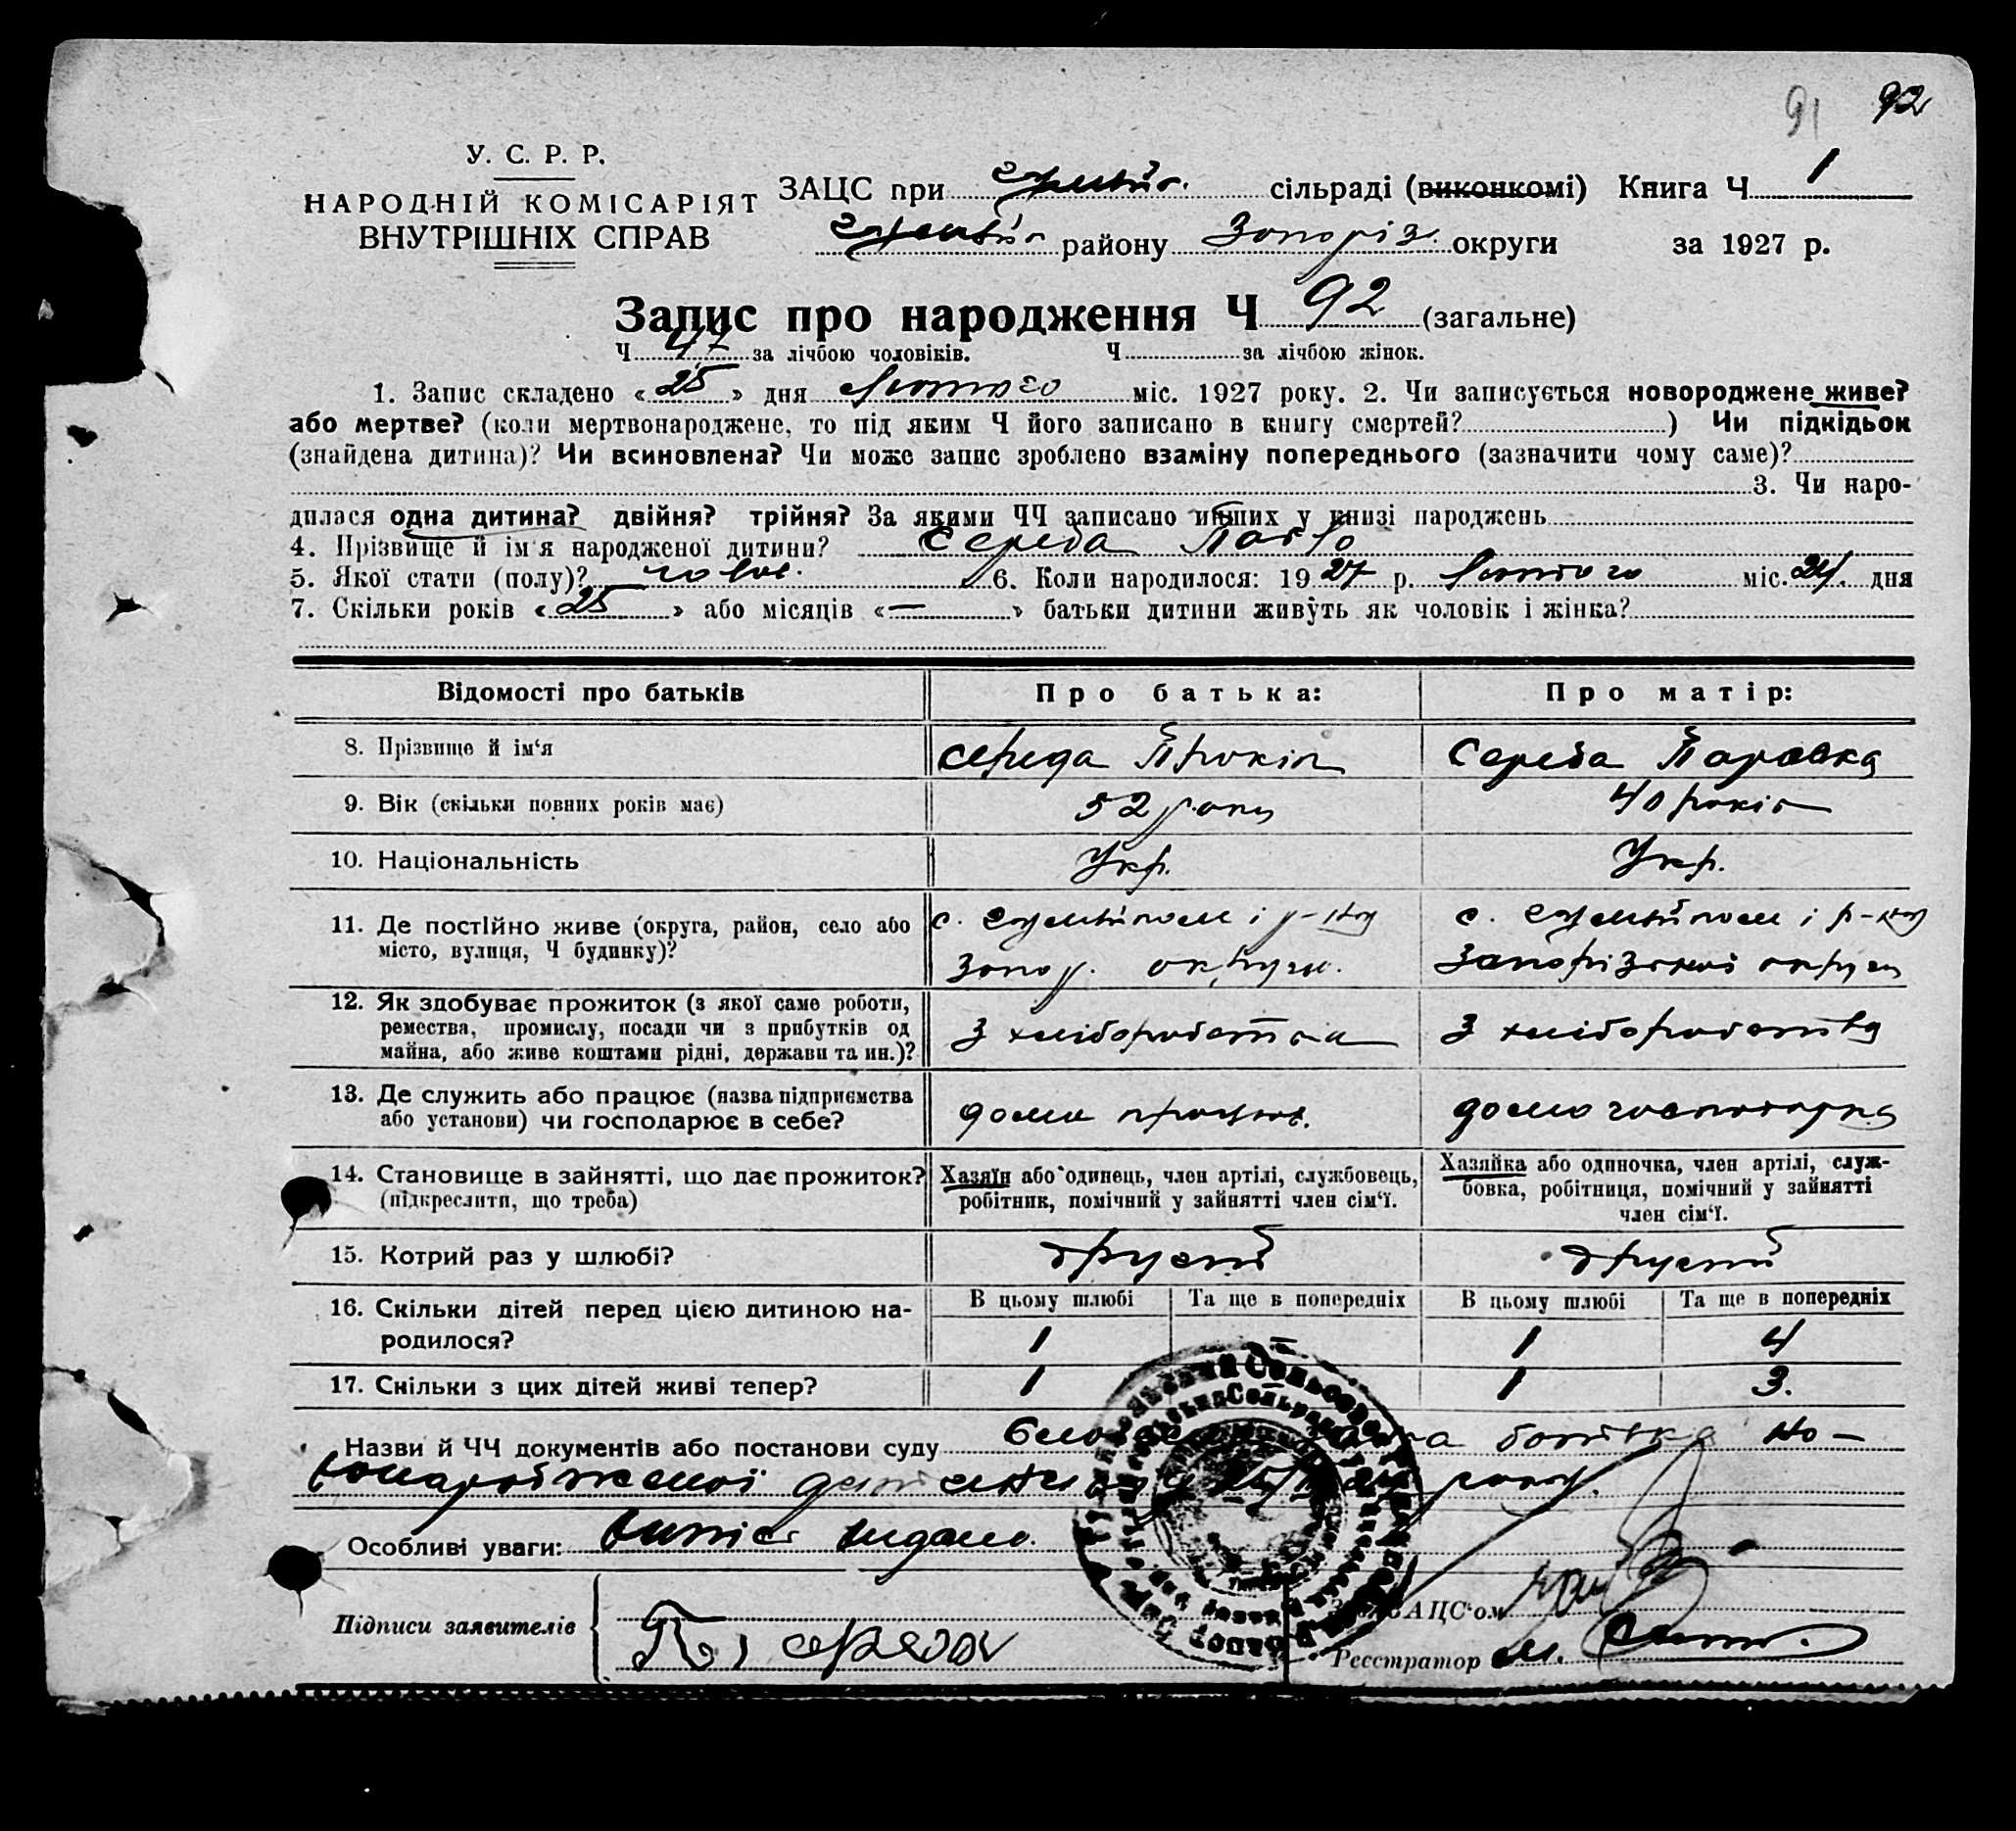 91 92
У. С. Р. Р.
НАРОДНІЙ КОМІСАРІЯТ
ВНУТРІШНІХ СПРАВ
ЗАЦС при сільраді (виконкомі) Книга Ч 1
району Запоріз. округи за 1927 р.
Запис про народження Ч 92 (загальне)
Ч 47 за лічбою чоловіків. Ч за лічбою жінок.
1. Запис складено «25» дня Лютого міс. 1927 року. 2. Чи записується новороджене живе?
або мертве? (коли мертвонароджене, то під яким Ч його записано в книгу смертей? ) Чи підкідьок
(знайдена дитина)? Чи всиновлена? Чи може запис зроблено взаміну попереднього (зазначити чому саме)?
3. Чи наро-
дилася одна дитина? двійня? трійня? За якими ЧЧ записано инших у книзі народжень
4. Прізвище й ім'я народженої дитини? Середа Павло
5. Якої стати (полу)? чолов. 6. Коли народилося: 1927 р. Лютого міс. 24. дня
7. Скільки років «25» або місяців «—» батьки дитини живуть як чоловік і жінка?
Відомості про батьків Про батька: Про матір:
8. Прізвище й ім'я Середа Прокіп Середа Параска
9. Вік (скільки повних років має) 52 роки 40 років
10. Національність Укр. Укр.
11. Де постійно живе (округа, район, село або с. і р-ну с. і р-ну
місто, вулиця, Ч будинку)? Запор. округи. Запорізької округи
12. Як здобуває прожиток (з якої саме роботи,
ремества, промислу, посади чи з прибутків од З хліборобства З хліборобства
майна, або живе коштами рідні, держави та ин.)?
13. Де служить або працює (назва підприємства
або установи) чи господарює в себе? дома працює. дома господарка
14. Становище в зайнятті, що дає прожиток? Хазяїн або одинець, член артілі, службовець, Хазяйка або одиночка, член артілі, служ-
(підкреслити, що треба) робітник, помічний у зайнятті член сім'ї. бовка, робітниця, помічний у зайнятті
член сім'ї.
15. Котрий раз у шлюбі? другий другий
16. Скільки дітей перед цією дитиною на- В цьому шлюбі Та ще в попередніх В цьому шлюбі Та ще в попередніх
родилося? 1 1 4
17. Скільки з цих дітей живі тепер? 1 1 3.
Назви й ЧЧ документів або постанови суду батька но-
вонародженої року.
Особливі уваги: видано.
Підписи заявителів П. Середа
ЗАЦС'ом
Реєстратор М.